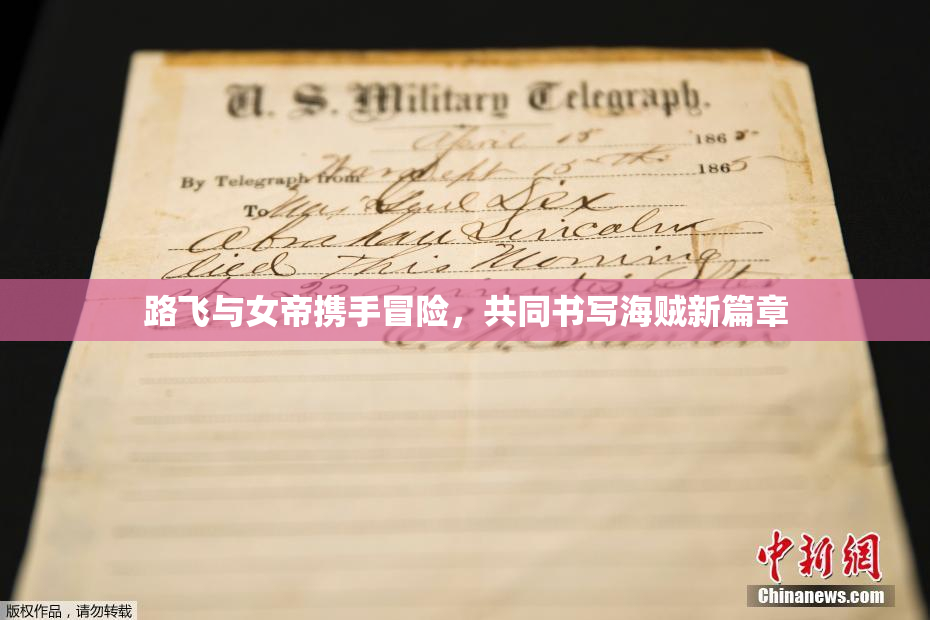 U. S. Military Telegraph.
April 15 1865
By Telegraph from War Dept 15th 1865
To Maj Genl Dix
Abraham Lincoln
died This Morning
at 22 minutes after
路飞与女帝携手冒险，共同书写海贼新篇章
E. M. Stanton
中新网
Chinanews.com
版权作品，请勿转载